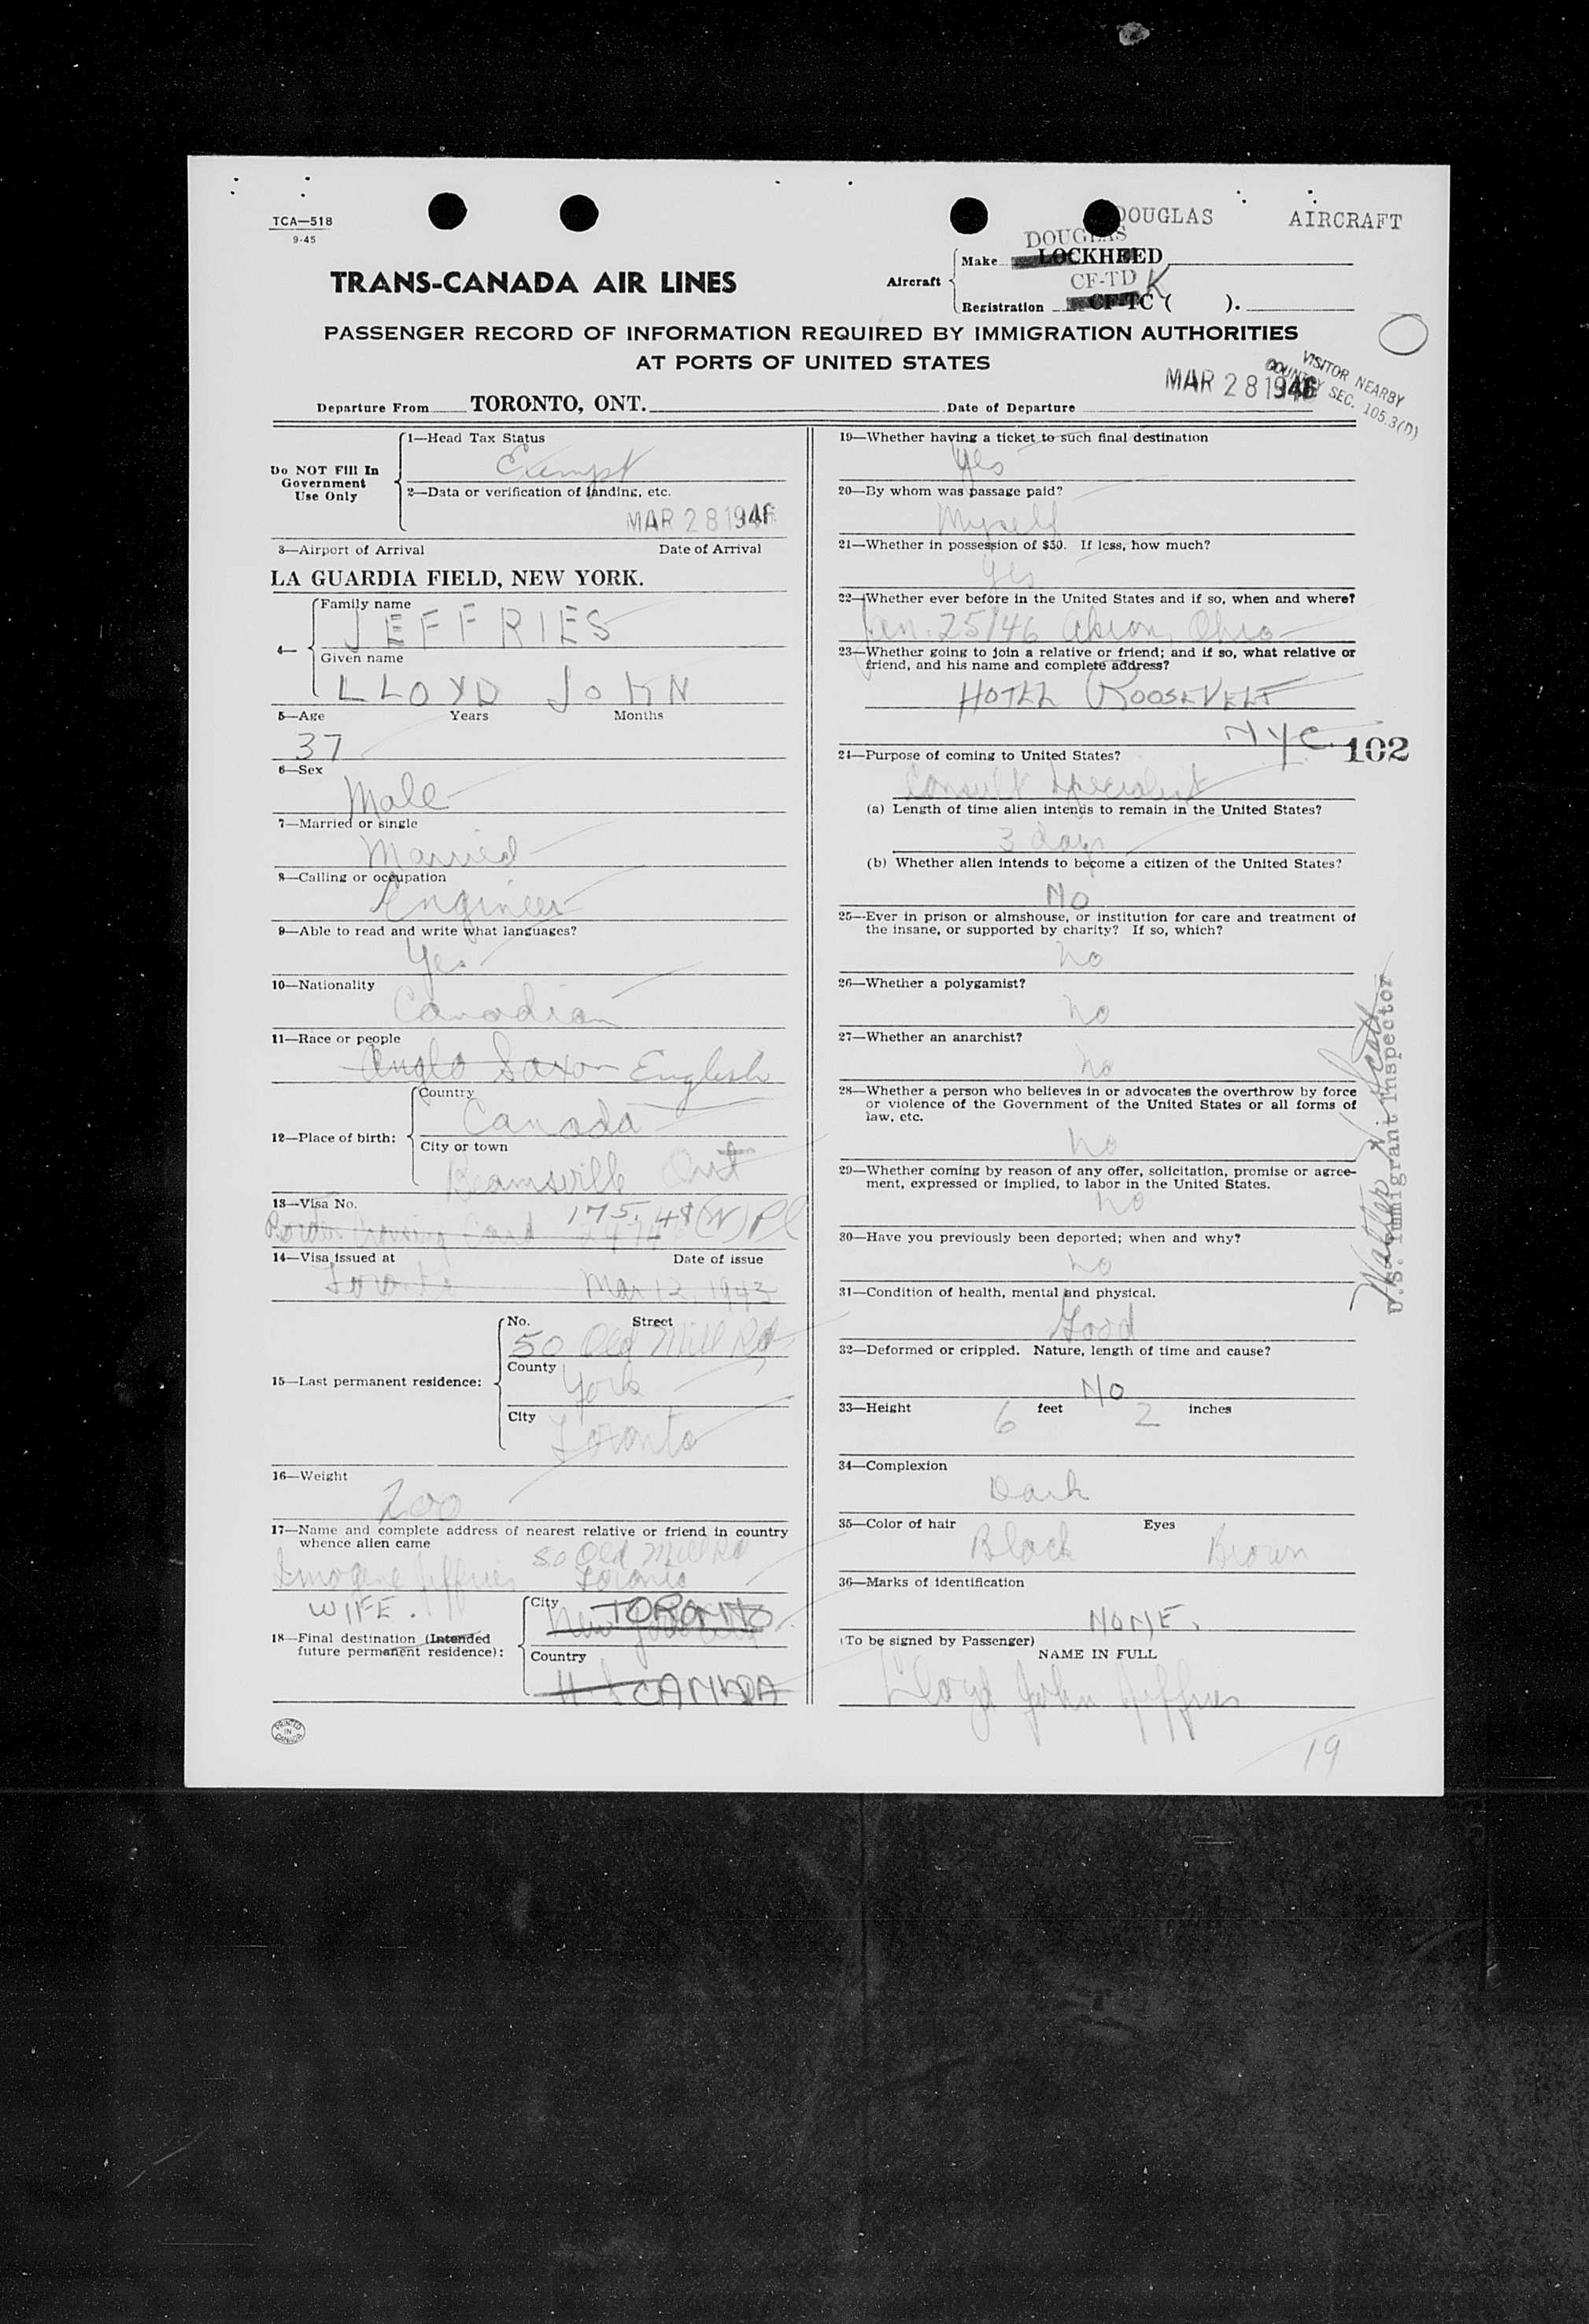 TCA—518
9-45
DOUGLAS AIRCRAFT
DOUGLAS
Make LOCKHEED
Aircraft
CF-TD K
Registration CF-TC ( ).
TRANS-CANADA AIR LINES
PASSENGER RECORD OF INFORMATION REQUIRED BY IMMIGRATION AUTHORITIES
AT PORTS OF UNITED STATES
VISITOR NEARBY
COUNTRY SEC. 105.3(D)
MAR 28 1946
Departure From TORONTO, ONT. Date of Departure
Do NOT Fill In
Government
Use Only
1—Head Tax Status
Exempt
2—Data or verification of landing, etc.
MAR 28 1946
3—Airport of Arrival Date of Arrival
LA GUARDIA FIELD, NEW YORK.
4—
Family name
JEFFRIES
Given name
LLOYD JOHN
5—Age Years Months
37
6—Sex
Male
7—Married or single
Married
8—Calling or occupation
Engineer
9—Able to read and write what languages?
Yes
10—Nationality
Canadian
11—Race or people
Anglo Saxon English
12—Place of birth:
Country
Canada
City or town
Beamsville Ont
13—Visa No.
175.48(W)
Border Crossing Card
14—Visa issued at Date of issue
Toronto Mar 12, 1943
15—Last permanent residence:
No. Street
50 Old Mill Rd
County
York
City
Toronto
16—Weight
200
17—Name and complete address of nearest relative or friend in country
whence alien came
50 Old Mill Rd
Imogene Jeffries Toronto
WIFE.
18—Final destination (Intended
future permanent residence):
City TORONTO
New York City
Country
CANADA
PRINTED
IN
CANADA
19—Whether having a ticket to such final destination
Yes
20—By whom was passage paid?
Myself
21—Whether in possession of $50. If less, how much?
Yes
22—Whether ever before in the United States and if so, when and where?
Jan. 25/46 Akron, Ohio
23—Whether going to join a relative or friend; and if so, what relative or
friend, and his name and complete address?
HOTEL ROOSEVELT
NYC 102
24—Purpose of coming to United States?
Consult Specialist
(a) Length of time alien intends to remain in the United States?
3 days
(b) Whether alien intends to become a citizen of the United States?
No
25—Ever in prison or almshouse, or institution for care and treatment of
the insane, or supported by charity? If so, which?
No
26—Whether a polygamist?
No
27—Whether an anarchist?
No
28—Whether a person who believes in or advocates the overthrow by force
or violence of the Government of the United States or all forms of
law, etc.
No
29—Whether coming by reason of any offer, solicitation, promise or agree-
ment, expressed or implied, to labor in the United States.
No
30—Have you previously been deported; when and why?
No
31—Condition of health, mental and physical.
Good
32—Deformed or crippled. Nature, length of time and cause?
No
33—Height 6 feet 2 inches
34—Complexion
Dark
35—Color of hair Eyes
Black Brown
36—Marks of identification
NONE.
(To be signed by Passenger)
NAME IN FULL
Lloyd John Jeffries
19
Walter
U.S. Immigrant Inspector